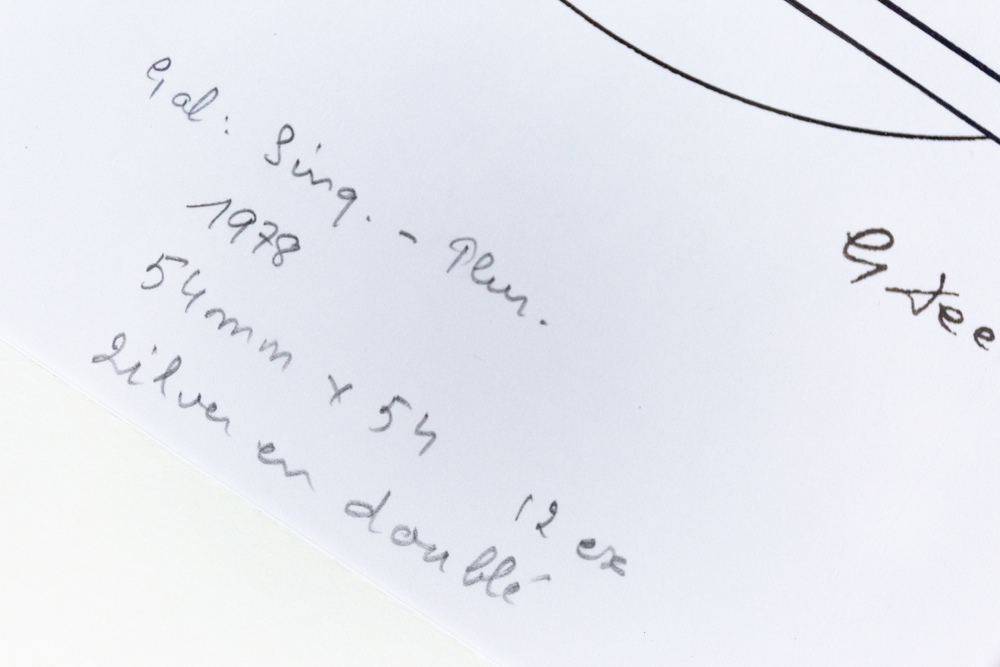 Gal: Sing. - Plur.
1978
54mm x 54
Zilver en doublé
12 ex